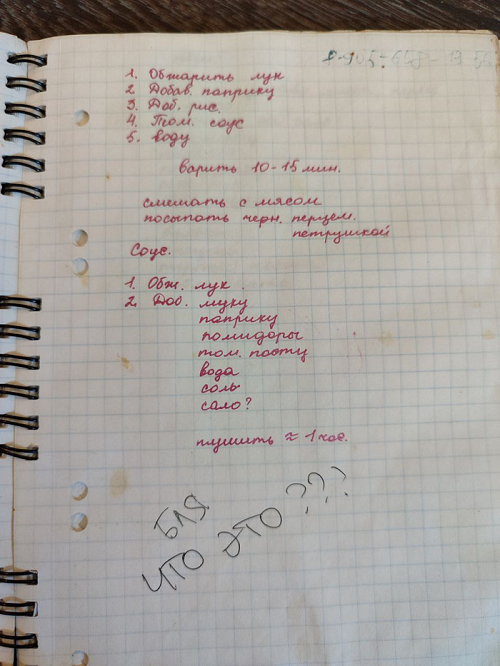 1. Обжарить лук
2 Добав. паприку
3. Доб. рис.
4. Том. соус
5. воду
варить 10-15 мин.
смешать с мясом
посыпать черн. перцем.
петрушкой
Соус.
1. Обж. лук.
2. Доб. муку
паприку
помидоры
том. пасту
вода
соль
сало?
тушить ≈ 1 час.
БЛЯ
ЧТО ЭТО ???